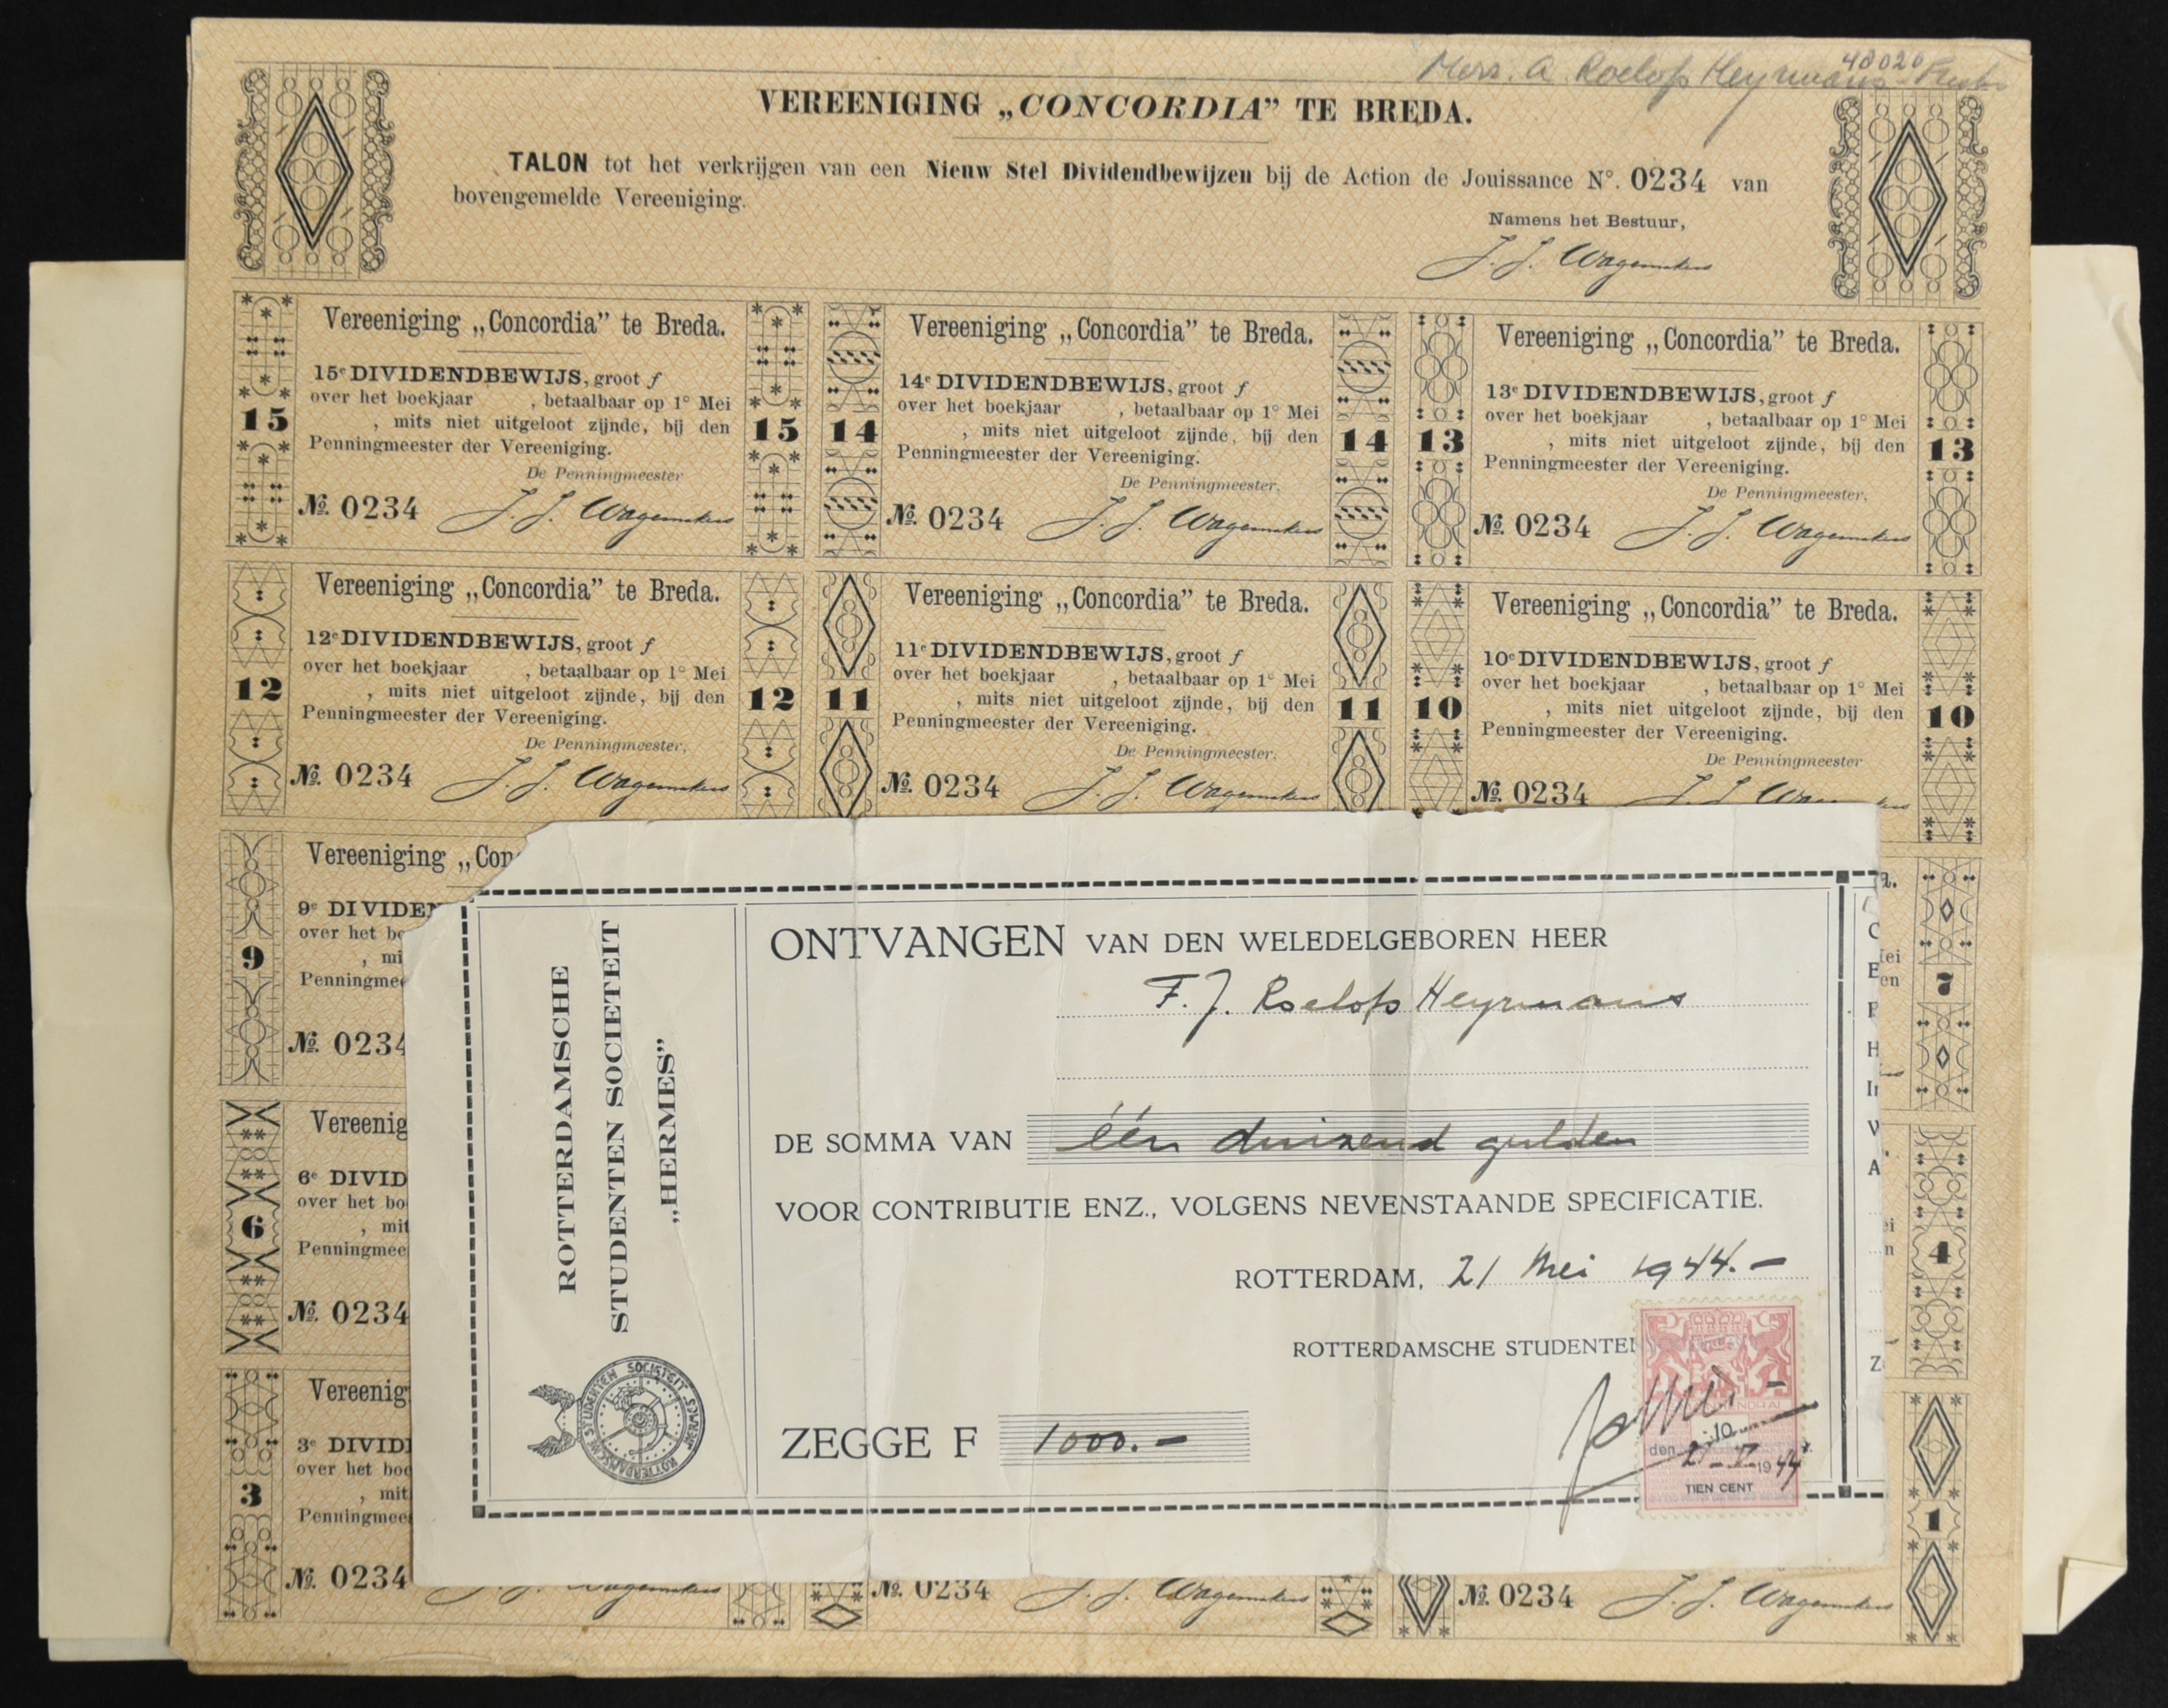 48020
Mevr. A. Roelofs Heyrmans
VEREENIGING „CONCORDIA” TE BREDA.
TALON tot het verkrijgen van een Nieuw Stel Dividendbewijzen bij de Action de Jouissance N°. 0234 van
bovengemelde Vereeniging.
Namens het Bestuur,
J. J. Wagemakers
Vereeniging „Concordia” te Breda.
15e DIVIDENDBEWIJS, groot f
over het boekjaar , betaalbaar op 1° Mei
15 , mits niet uitgeloot zijnde, bij den 15
Penningmeester der Vereeniging.
De Penningmeester
№. 0234 J. J. Wagemakers
Vereeniging „Concordia” te Breda.
14e DIVIDENDBEWIJS, groot f
over het boekjaar , betaalbaar op 1° Mei
14 , mits niet uitgeloot zijnde, bij den 14
Penningmeester der Vereeniging.
De Penningmeester,
№. 0234 J. J. Wagemakers
Vereeniging „Concordia” te Breda.
13e DIVIDENDBEWIJS, groot f
over het boekjaar , betaalbaar op 1° Mei
13 , mits niet uitgeloot zijnde, bij den 13
Penningmeester der Vereeniging.
De Penningmeester,
№. 0234 J. J. Wagemakers
Vereeniging „Concordia” te Breda.
12e DIVIDENDBEWIJS, groot f
over het boekjaar , betaalbaar op 1° Mei
12 , mits niet uitgeloot zijnde, bij den 12
Penningmeester der Vereeniging.
De Penningmeester,
№. 0234 J. J. Wagemakers
Vereeniging „Concordia” te Breda.
11e DIVIDENDBEWIJS, groot f
over het boekjaar , betaalbaar op 1° Mei
11 , mits niet uitgeloot zijnde, bij den 11
Penningmeester der Vereeniging.
De Penningmeester,
№. 0234 J. J. Wagemakers
Vereeniging „Concordia” te Breda.
10e DIVIDENDBEWIJS, groot f
over het boekjaar , betaalbaar op 1° Mei
10 , mits niet uitgeloot zijnde, bij den 10
Penningmeester der Vereeniging.
De Penningmeester
№. 0234 J. J. Wagemakers
Vereeniging „Con
9e DIVIDEN
over het bo
9 , mi
Penningmee
№. 0234
7
Vereenig
6e DIVID
over het bo
6 , mit
Penningmee
№. 0234
4
Vereenig
3e DIVID
over het boe
3 , mit
Penningmee
№. 0234 J. J. Wagemakers
№. 0234 J. J. Wagemakers
1
№. 0234 J. J. Wagemakers
ROTTERDAMSCHE
STUDENTEN SOCIETEIT
„HERMES”
ROTTERDAMSCHE STUDENTEN SOCIETEIT HERMES
ONTVANGEN VAN DEN WELEDELGEBOREN HEER
F. J. Roelofs Heyrmans
DE SOMMA VAN één duizend gulden
VOOR CONTRIBUTIE ENZ., VOLGENS NEVENSTAANDE SPECIFICATIE.
ROTTERDAM, 21 Mei 1944.-
ROTTERDAMSCHE STUDENTEN
ZEGGE F 1000.-
10
den 21-V-1944
TIEN CENT